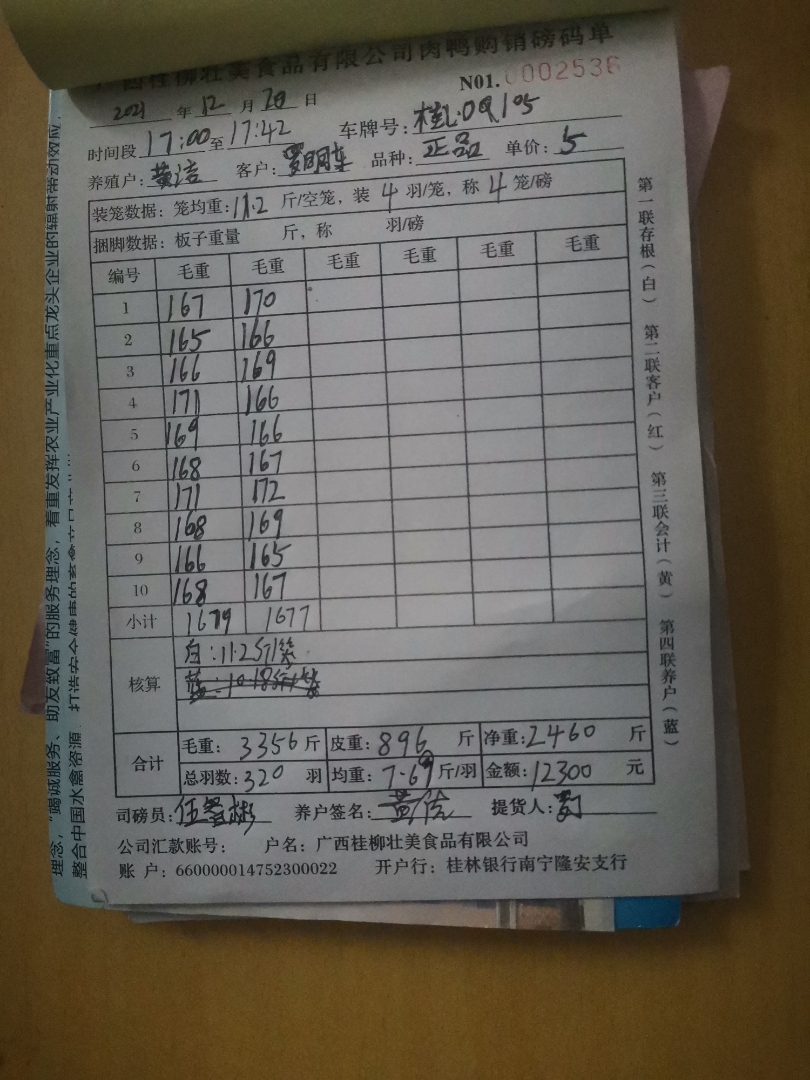 西桂柳壮美食品有限公司肉鸭购销磅码单
NO1.0002536
2021 年 12 月 20 日
时间段 17:00 至 17:42 车牌号: 桂
养殖户: 黄洁 客户: 罗明 品种: 正品 单价: 5
装笼数据: 笼均重: 11.2 斤/空笼, 装 4 羽/笼, 称 4 笼/磅
捆脚数据: 板子重量 斤, 称 羽/磅
编号 毛重 毛重 毛重 毛重 毛重
1 167 170
2 165 166
3 166 169
4 171 166
5 169 166
6 168 167
7 171 172
8 168 169
9 166 165
10 168 167
小计 1679 1677
核算 白: 11.2斤/笼
合计 毛重: 3356 斤 皮重: 896 斤 净重: 2460 斤
总羽数: 320 羽 均重: 7.69 斤/羽 金额: 12300 元
司磅员: 伍 彬 养户签名: 黄 提货人:
公司汇款账号: 户名: 广西桂柳壮美食品有限公司
账 户: 660000014752300022 开户行: 桂林银行南宁隆安支行
第一联存根(白) 第二联客户(红) 第三联会计(黄) 第四联养户(蓝)
理念, “竭诚服务、助友致富”的服务理念, 着重发挥农业产业化重点龙头企业的辐射带动效应,
整合中国水禽资源